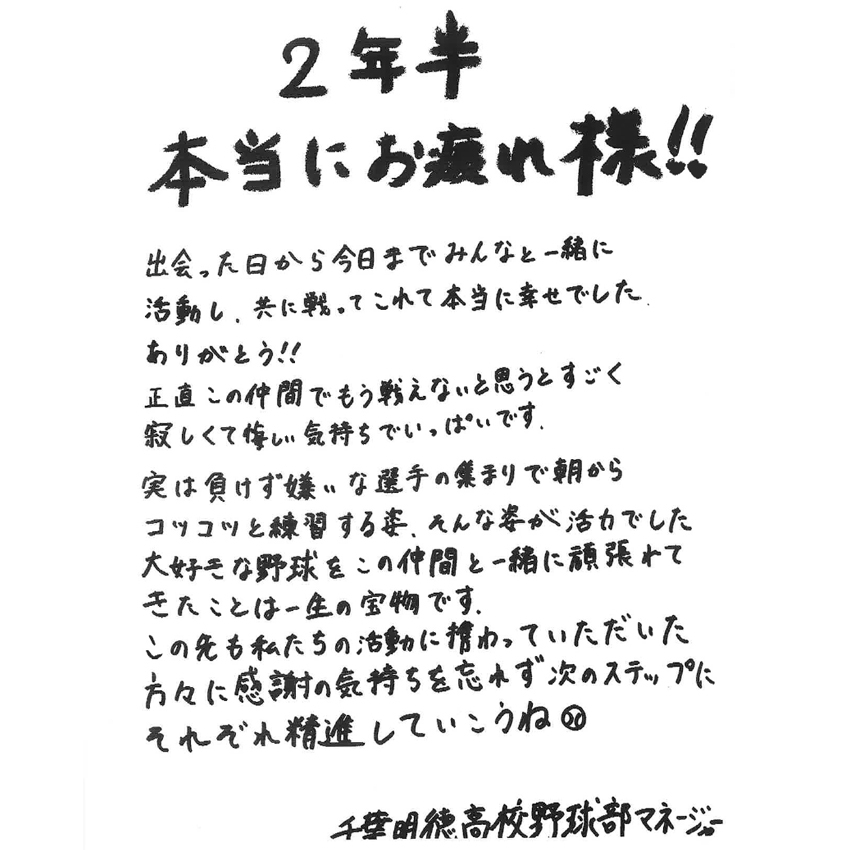 2年半
本当にお疲れ様!!
出会った日から今日までみんなと一緒に
活動し、共に戦ってこれて本当に幸せでした。
ありがとう!!
正直この仲間でもう戦えないと思うとすごく
寂しくて悔しい気持ちでいっぱいです。
実は負けず嫌いな選手の集まりで朝から
コツコツと練習する姿、そんな姿が活力でした
大好きな野球をこの仲間と一緒に頑張れて
きたことは一生の宝物です。
この先も私たちの活動に携わっていただいた
方々に感謝の気持ちを忘れず次のステップに
それぞれ精進していこうね
千葉明徳高校野球部マネージャー